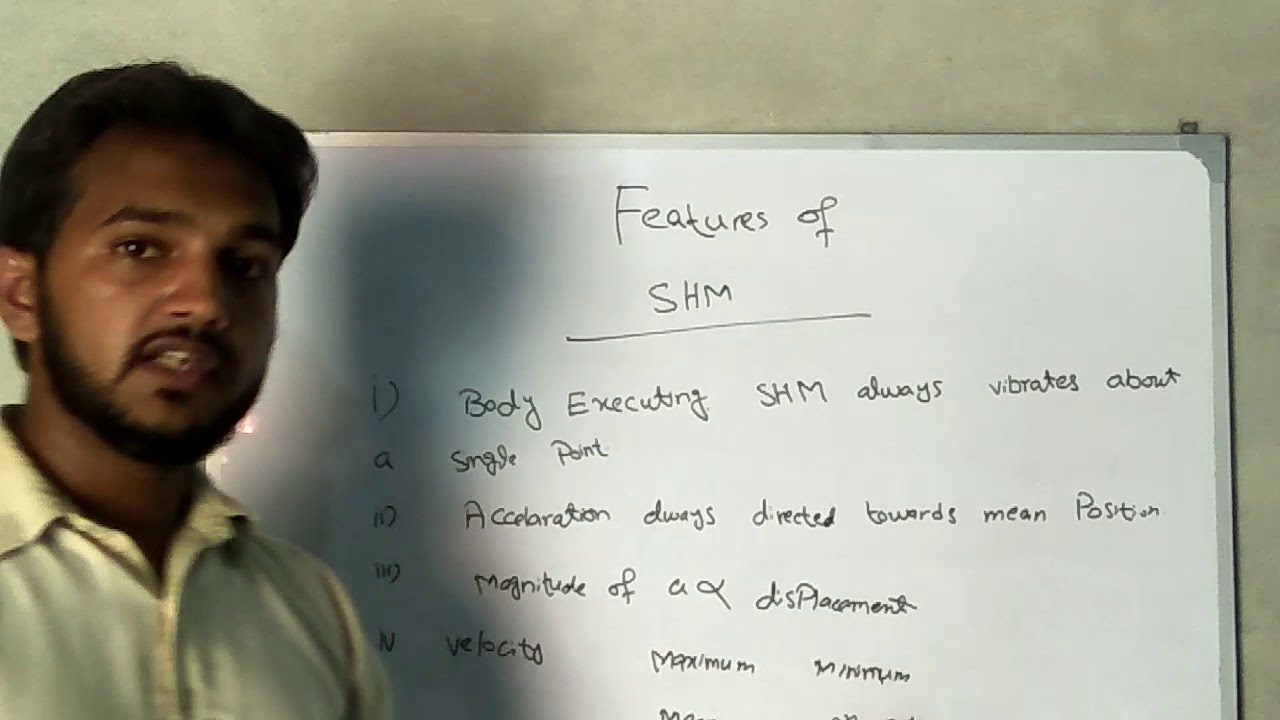 Features of
SHM
i) Body Executing SHM always vibrates about
a single Point
ii) Accelaration always directed towards mean Position
iii) Magnitude of a ∝ disPlacement
iv velocity Maximum Minimum